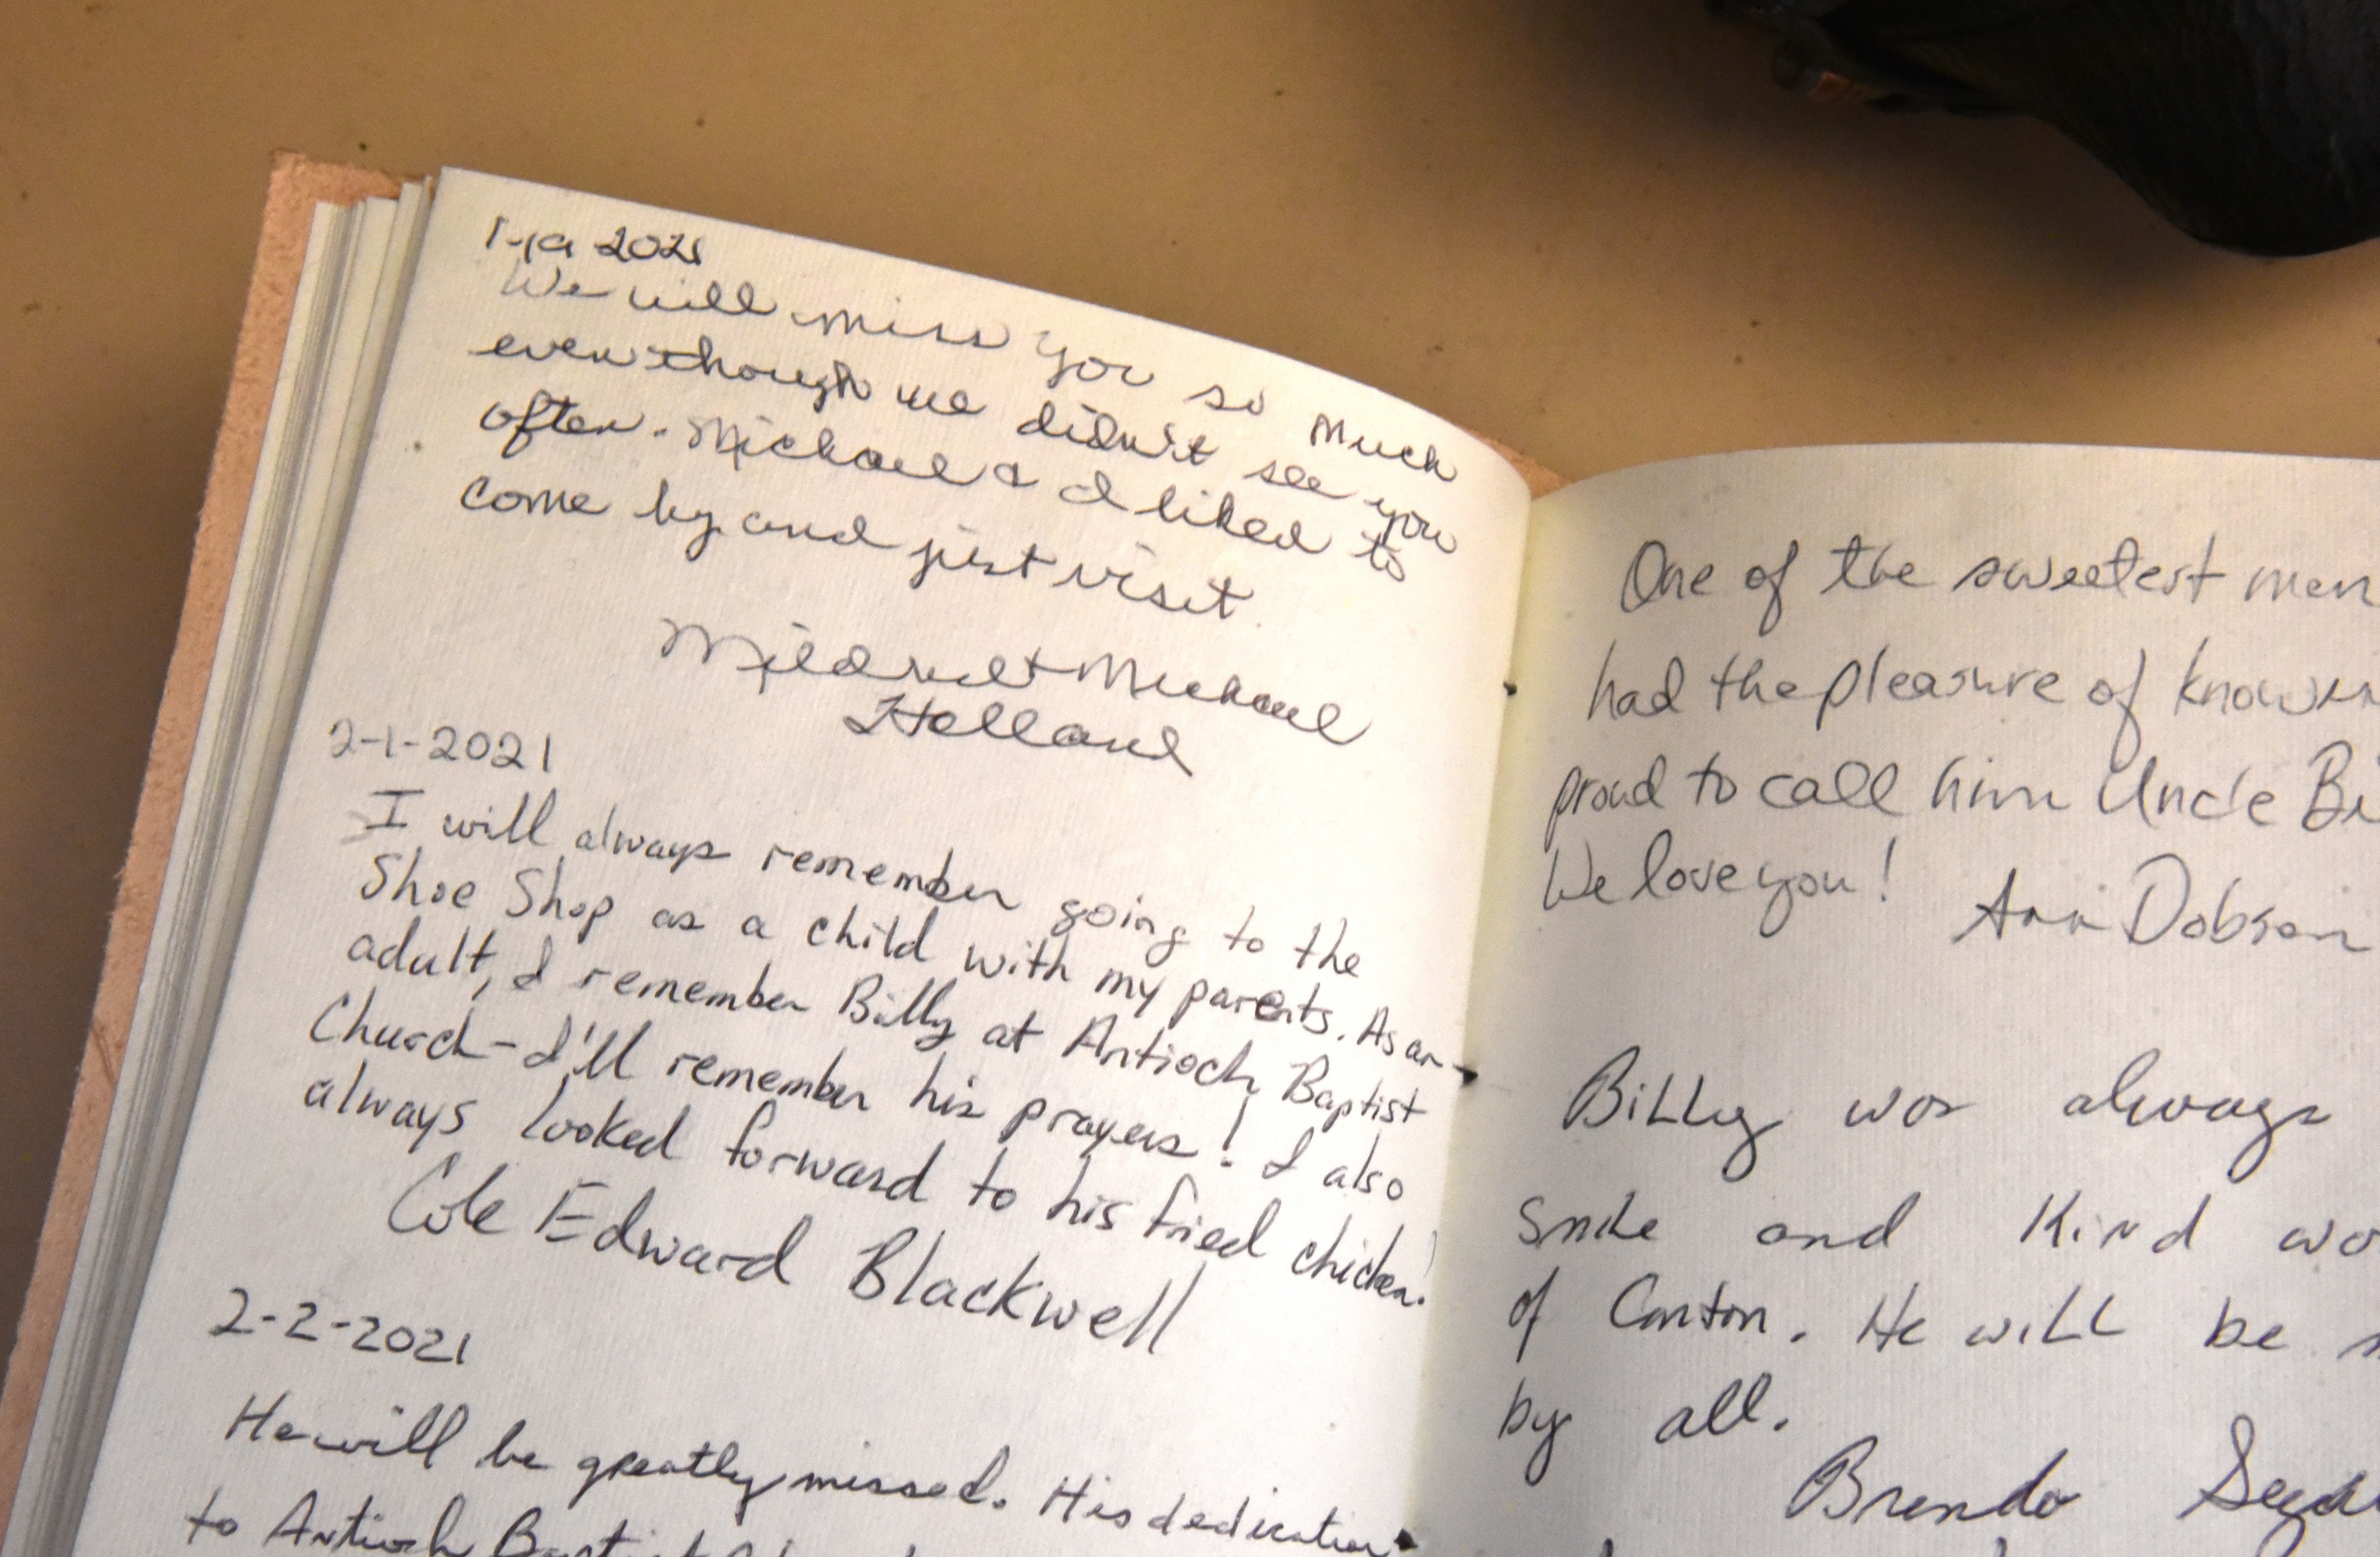 2021
We will miss you so much
even though we didn't see you
often. Michael & I liked to
come by and just visit.
Mildred & Michael
Holland
2-1-2021
I will always remember going to the
Shoe Shop as a child with my parents. As an
adult, I remember Billy at Antioch Baptist
Church - I'll remember his prayers! I also
always looked forward to his fried chicken!
Cole Edward Blackwell
2-2-2021
He will be greatly missed. His dedication
to Antioch Baptist
One of the sweetest men
had the pleasure of
proud to call him Uncle
We love you!
Ann Dobson
Billy was always
smile and kind
of Canton. He will be
by all.
Brenda